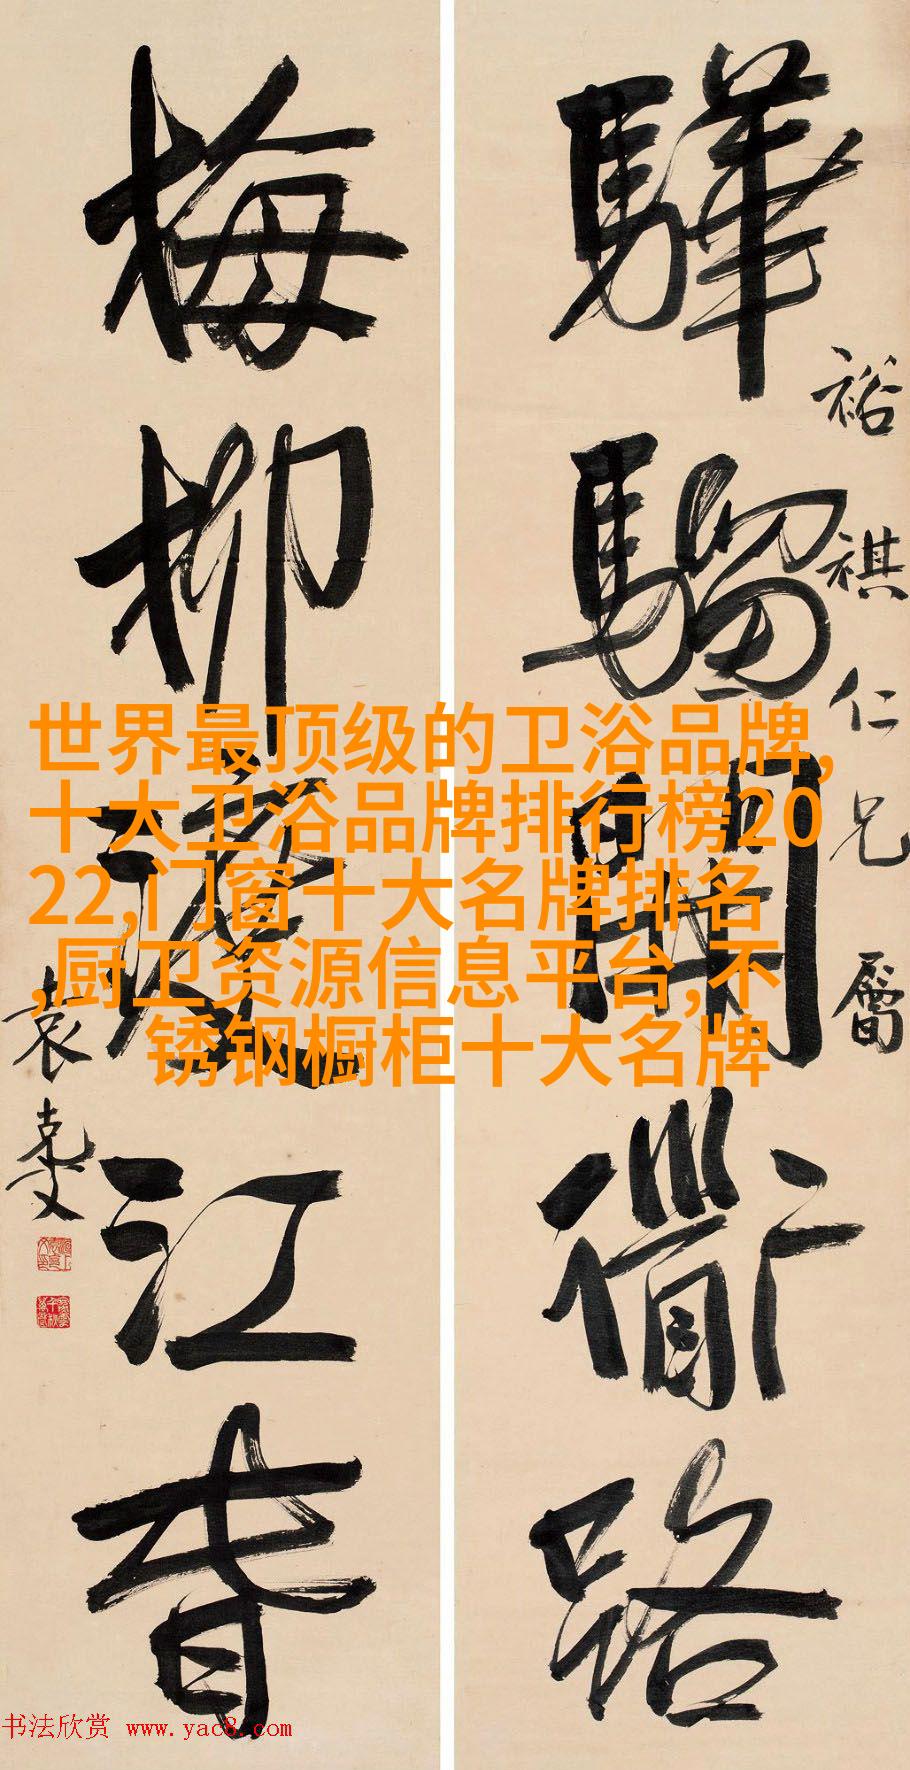 裕祺仁兄屬
驊騮開衜路
梅柳渡江春
袁克文
世界最顶级的卫浴品牌,
十大卫浴品牌排行榜20
22,门窗十大名牌排名
,厨卫资源信息平台,不
锈钢橱柜十大名牌
书法欣赏 www.yac8.com